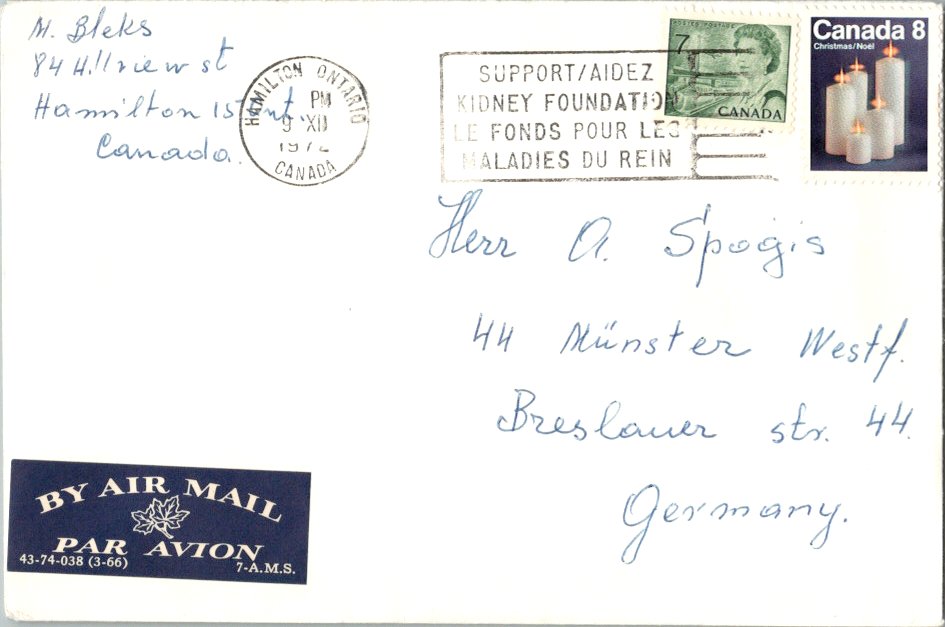 M. Bleks
84 Hillview st
Hamilton 15 Ont.
Canada.
HAMILTON ONTARIO
PM
9 XII
1972
CANADA
SUPPORT/AIDEZ
KIDNEY FOUNDATION
LE FONDS POUR LES
MALADIES DU REIN
POSTES POSTAGE
7
CANADA
Canada 8
Christmas/Noël
Herr A. Spoģis
44 Münster Westf.
Breslauer str. 44.
Germany.
BY AIR MAIL
PAR AVION
43-74-038 (3-66)
7-A.M.S.